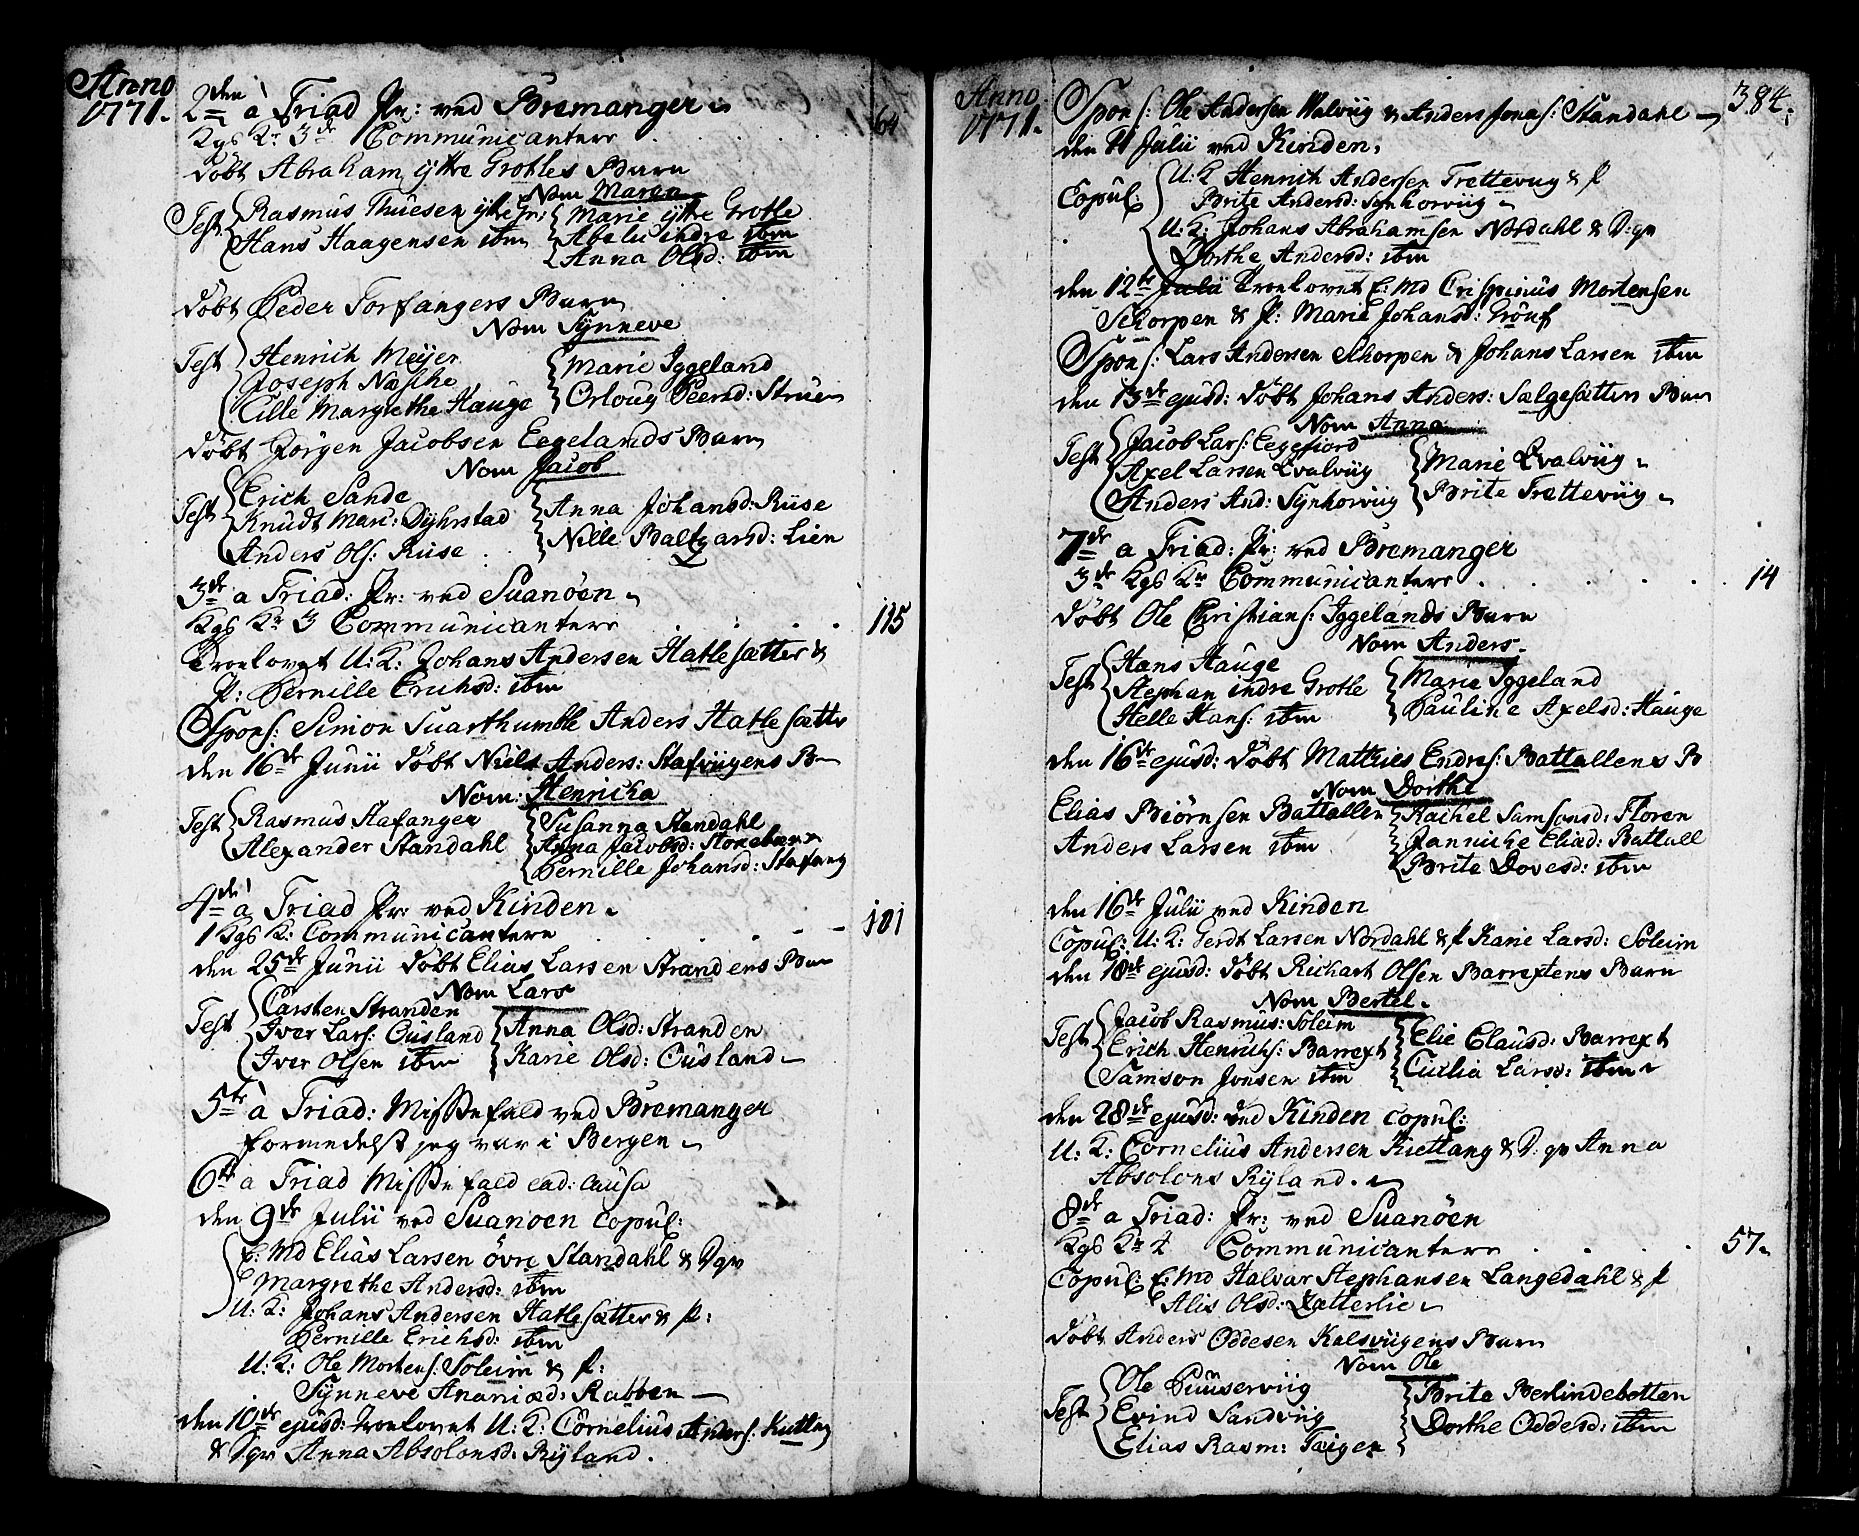 Anno
1771.
2den à Triad Pr: ved Bremanger
Kgs Kr 3de Communicantere 64
døbt Abraham ytre Grotles Barn
Nom Maren
Test Rasmus Thuesen ytre Gr: Marie ytre Grotle
Hans Haagensen ibm Abelu indre ibm
Anna Olsd: ibm
døbt Peder Torfangers Barn
Nom Synneve
Test Henrich Meÿer Marie Iggeland
Joseph Næsche Orloug Peersd: Struen
Cille Margrethe Hauge
døbt Jørgen Jacobsen Eegelands Barn
Nom Jacob
Test Erich Sande Anna Johansd: Riise
Knudt Marc: Dyhrstad Nille Baltzarsd: Lien
Anders Ols: Riise
3de a Triad: Pr: ved Suanöen
Kgs Kr 3 Communicantere 115
Troelovet U: K: Johans Andersen Hatlesætter &
P: Pernille Erichsd: ibm
Spons: Simon Suarthumble Anders Hatlesætter
den 16de Junii døbt Niels Anders: Stafviigens B
Nom: Henricka
Test Rasmus Stafanger Susanna Standahl
Alexander Standahl Anna Jacobsd:
Pernille Johansd: Stafang
4de à Triad Pr: ved Kinden
1 Kgs K: Communicantere 101
den 25de Junii døbt Elias Larsen Strandens Bar
Nom Lars
Test Carsten Stranden Anna Olsd: Stranden
Iver Lars: Ousland Karie Olsd: Ousland
Iver Olsen ibm
5te à Triad: Missefald ved Bremanger
formedelst jeg var i Bergen
6te a Triad Missefald ead: causa
den 9de Julii ved Suanöen copul:
E: Md Elias Larsen övre Standahl & Dqv
Margrethe Andersd: ibm
U: K: Johans Andersen Hatlesætter & P:
Pernille Erichsd: ibm
U: K: Ole Mortens: Soleim & P:
Synneve Ananiæd: Rabben
den 10de ejusd: troelovet U: K: Cornelius Anders: Kietlang
& Dqv Anna Absolonsd: Ryland.
Anno
1771.
384.
Spons: Ole Andersen Walviig & Anders Jonas: Standahl
den 11 Julii ved Kinden.
Copul: U: K Henrich Andersen Trettevug & P
Brite Andersd: Synhorviig
U: K: Johans Abrahamsen Nordahl & D: qv
Dorthe Andersd: ibm
den 12te Julii troelovet E: Md Crispinus Mortensen
Schorpen & P: Marie Johansd: Grönf
Spons: Lars Andersen Schorpen & Johans Larsen ibm
den 13de ejusd: døbt Johans Anders: Sælgesætters Barn
Nom Anna
Test Jacob Lars: Eegefiord Marie Qvalviig
Axel Larsen Qvalviig Brite Trætteviig
Anders And: Synhorviig
7de a Triad: Pr: ved Bremanger
3de Kgs Kr Communicantere 14
døbt Ole Christians: Iggelands Barn
Nom Anders
Test Hans Hauge Marie Iggeland
Stephan indre Grotle Pauline Axelsd: Hauge
Helle Hans: ibm
den 16de ejusd: døbt Mathies Endres: Battallens B
Nom Dorthe
Elias Biörnsen Battallen Rachel Samsonsd: Floren
Anders Larsen ibm Jannicke Eliad: Battall
Brite Dovesd: ibm
den 16de Julii ved Kinden
Copul: U: K: Gerdt Larsen Nordahl & P Karie Larsd: Soleim
den 18de ejusd: døbt Richart Olsen Barrextens Barn
Nom Bertel
Test Jacob Rasmus: Soleim Elie Clausd: Barrext
Erich Henrichs: Barrext Cicilia Larsd: ibm
Samson Jonsen ibm
den 28de ejusd: ved Kinden copul:
U: K: Cornelius Andersen Kietlang & D: qv Anna
Absolons Ryland.
8de a Triad: Pr: ved Suanöen
Kgs Kr 4 Communicantere 57
Copul: E: Md Halvar Stephansen Langedahl & P
Alis Olsd: Zatterlie
døbt Anders Oddesen Kalsviigens Barn
Nom Ole
Test Ole Puuserviig Brita Berlindebotten
Evind Sandviig Dorthe Oddesd: ibm
Elias Rasm: Taigen